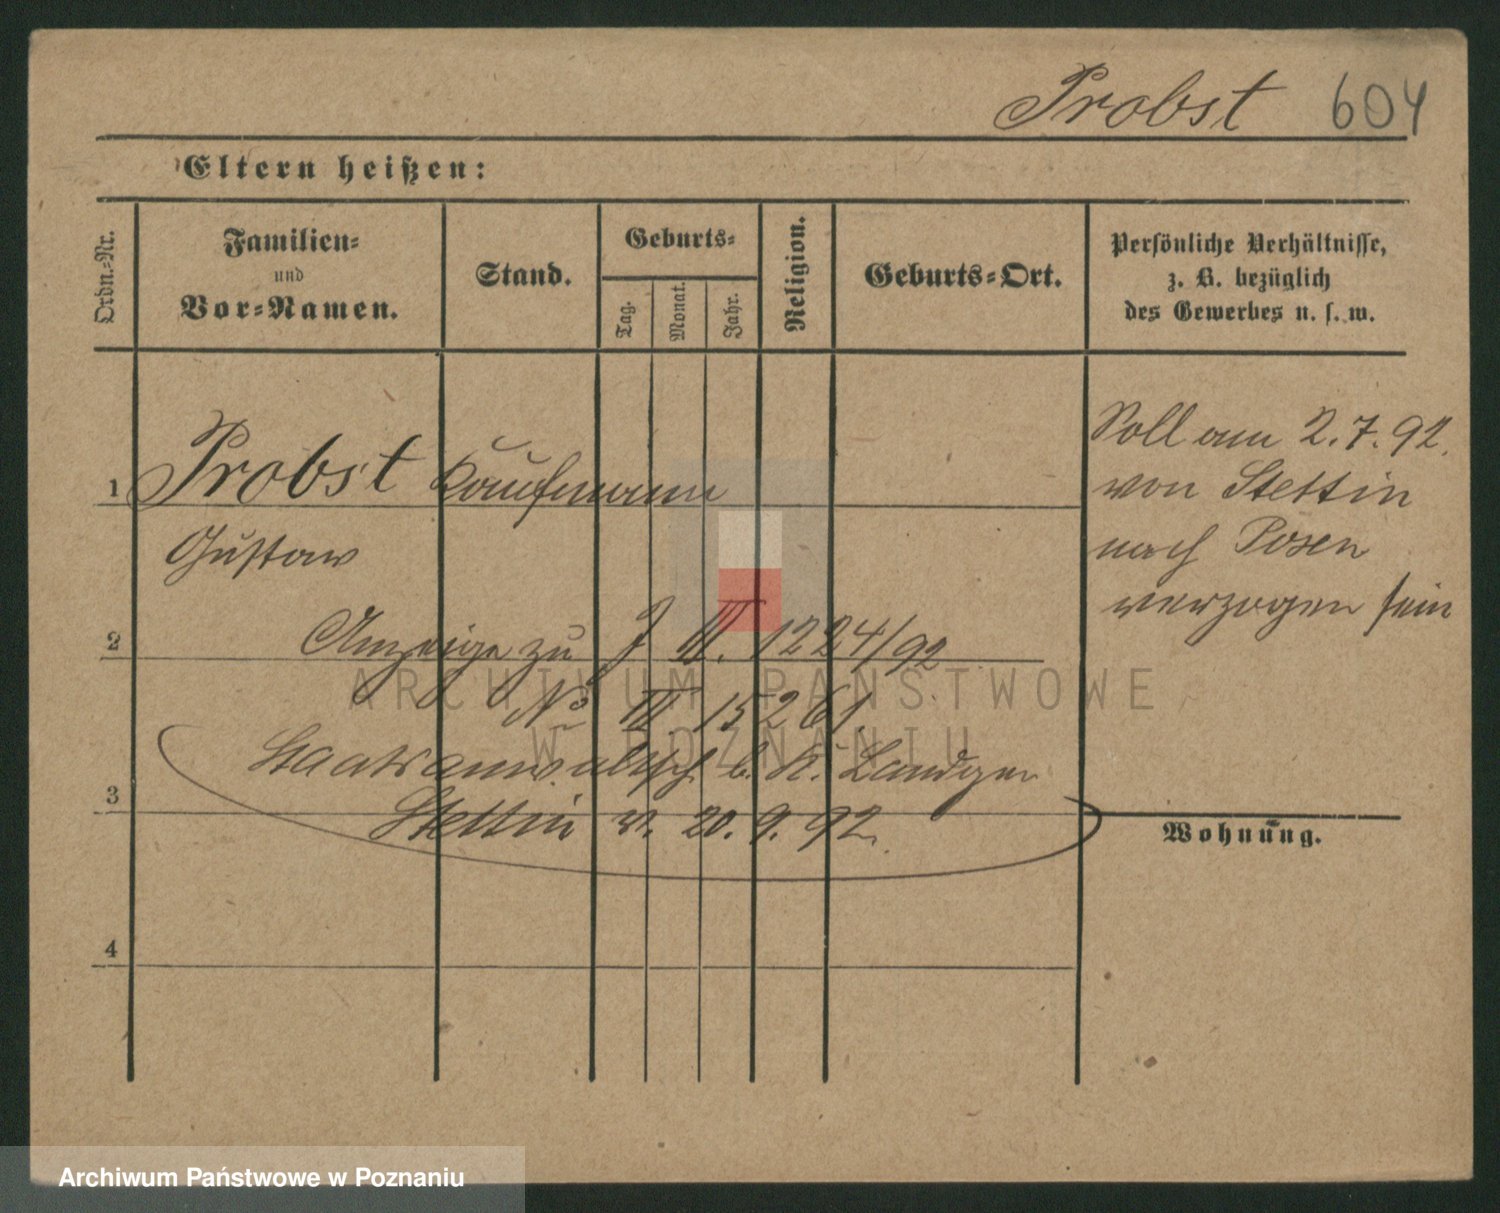 Probst 604
Eltern heißen:
Ordn.-Nr.
Familien-
und
Vor-Namen.
Stand.
Geburts-
Tag.
Monat.
Jahr.
Religion.
Geburts-Ort.
Persönliche Verhältnisse,
z. B. bezüglich
des Gewerbes u. s. w.
1 Probst Kaufmann
Gustav
2 Anzeige zu J III. 1224/92
No III 15261
Staatsanwaltsch. b. K. Landger
3 Stettin v. 20. 9. 92.
4
Soll am 2. 7. 92.
von Stettin
nach Posen
verzogen sein
Wohnung.
ARCHIWUM PAŃSTWOWE
W POZNANIU
Archiwum Państwowe w Poznaniu